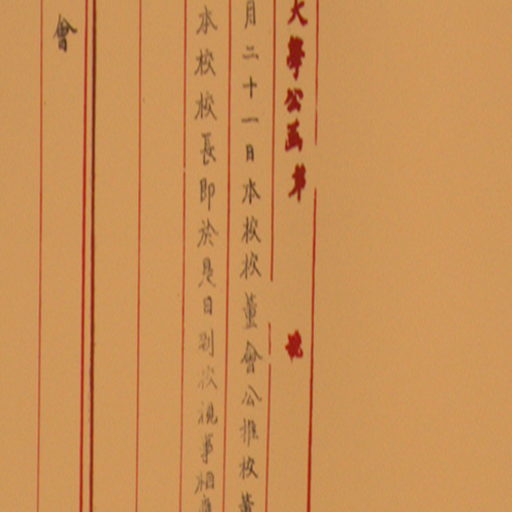 大學公函第 號
月二十一日本校校董會公推校董
本校校長即於是日到校視事相應
會